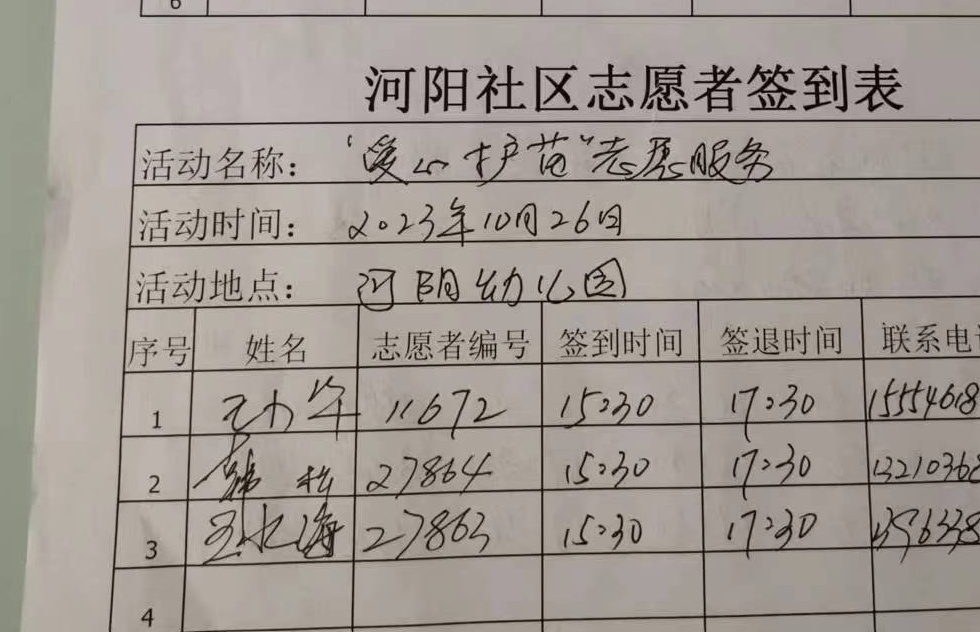 6
河阳社区志愿者签到表
活动名称: "爱心护苗"志愿服务
活动时间: 2023年10月26日
活动地点: 河阳幼儿园
序号 姓名 志愿者编号 签到时间 签退时间 联系电
1 11672 15:30 17:30 15554618
2 27864 15:30 17:30 1321036
3 王永海 27863 15:30 17:30
4